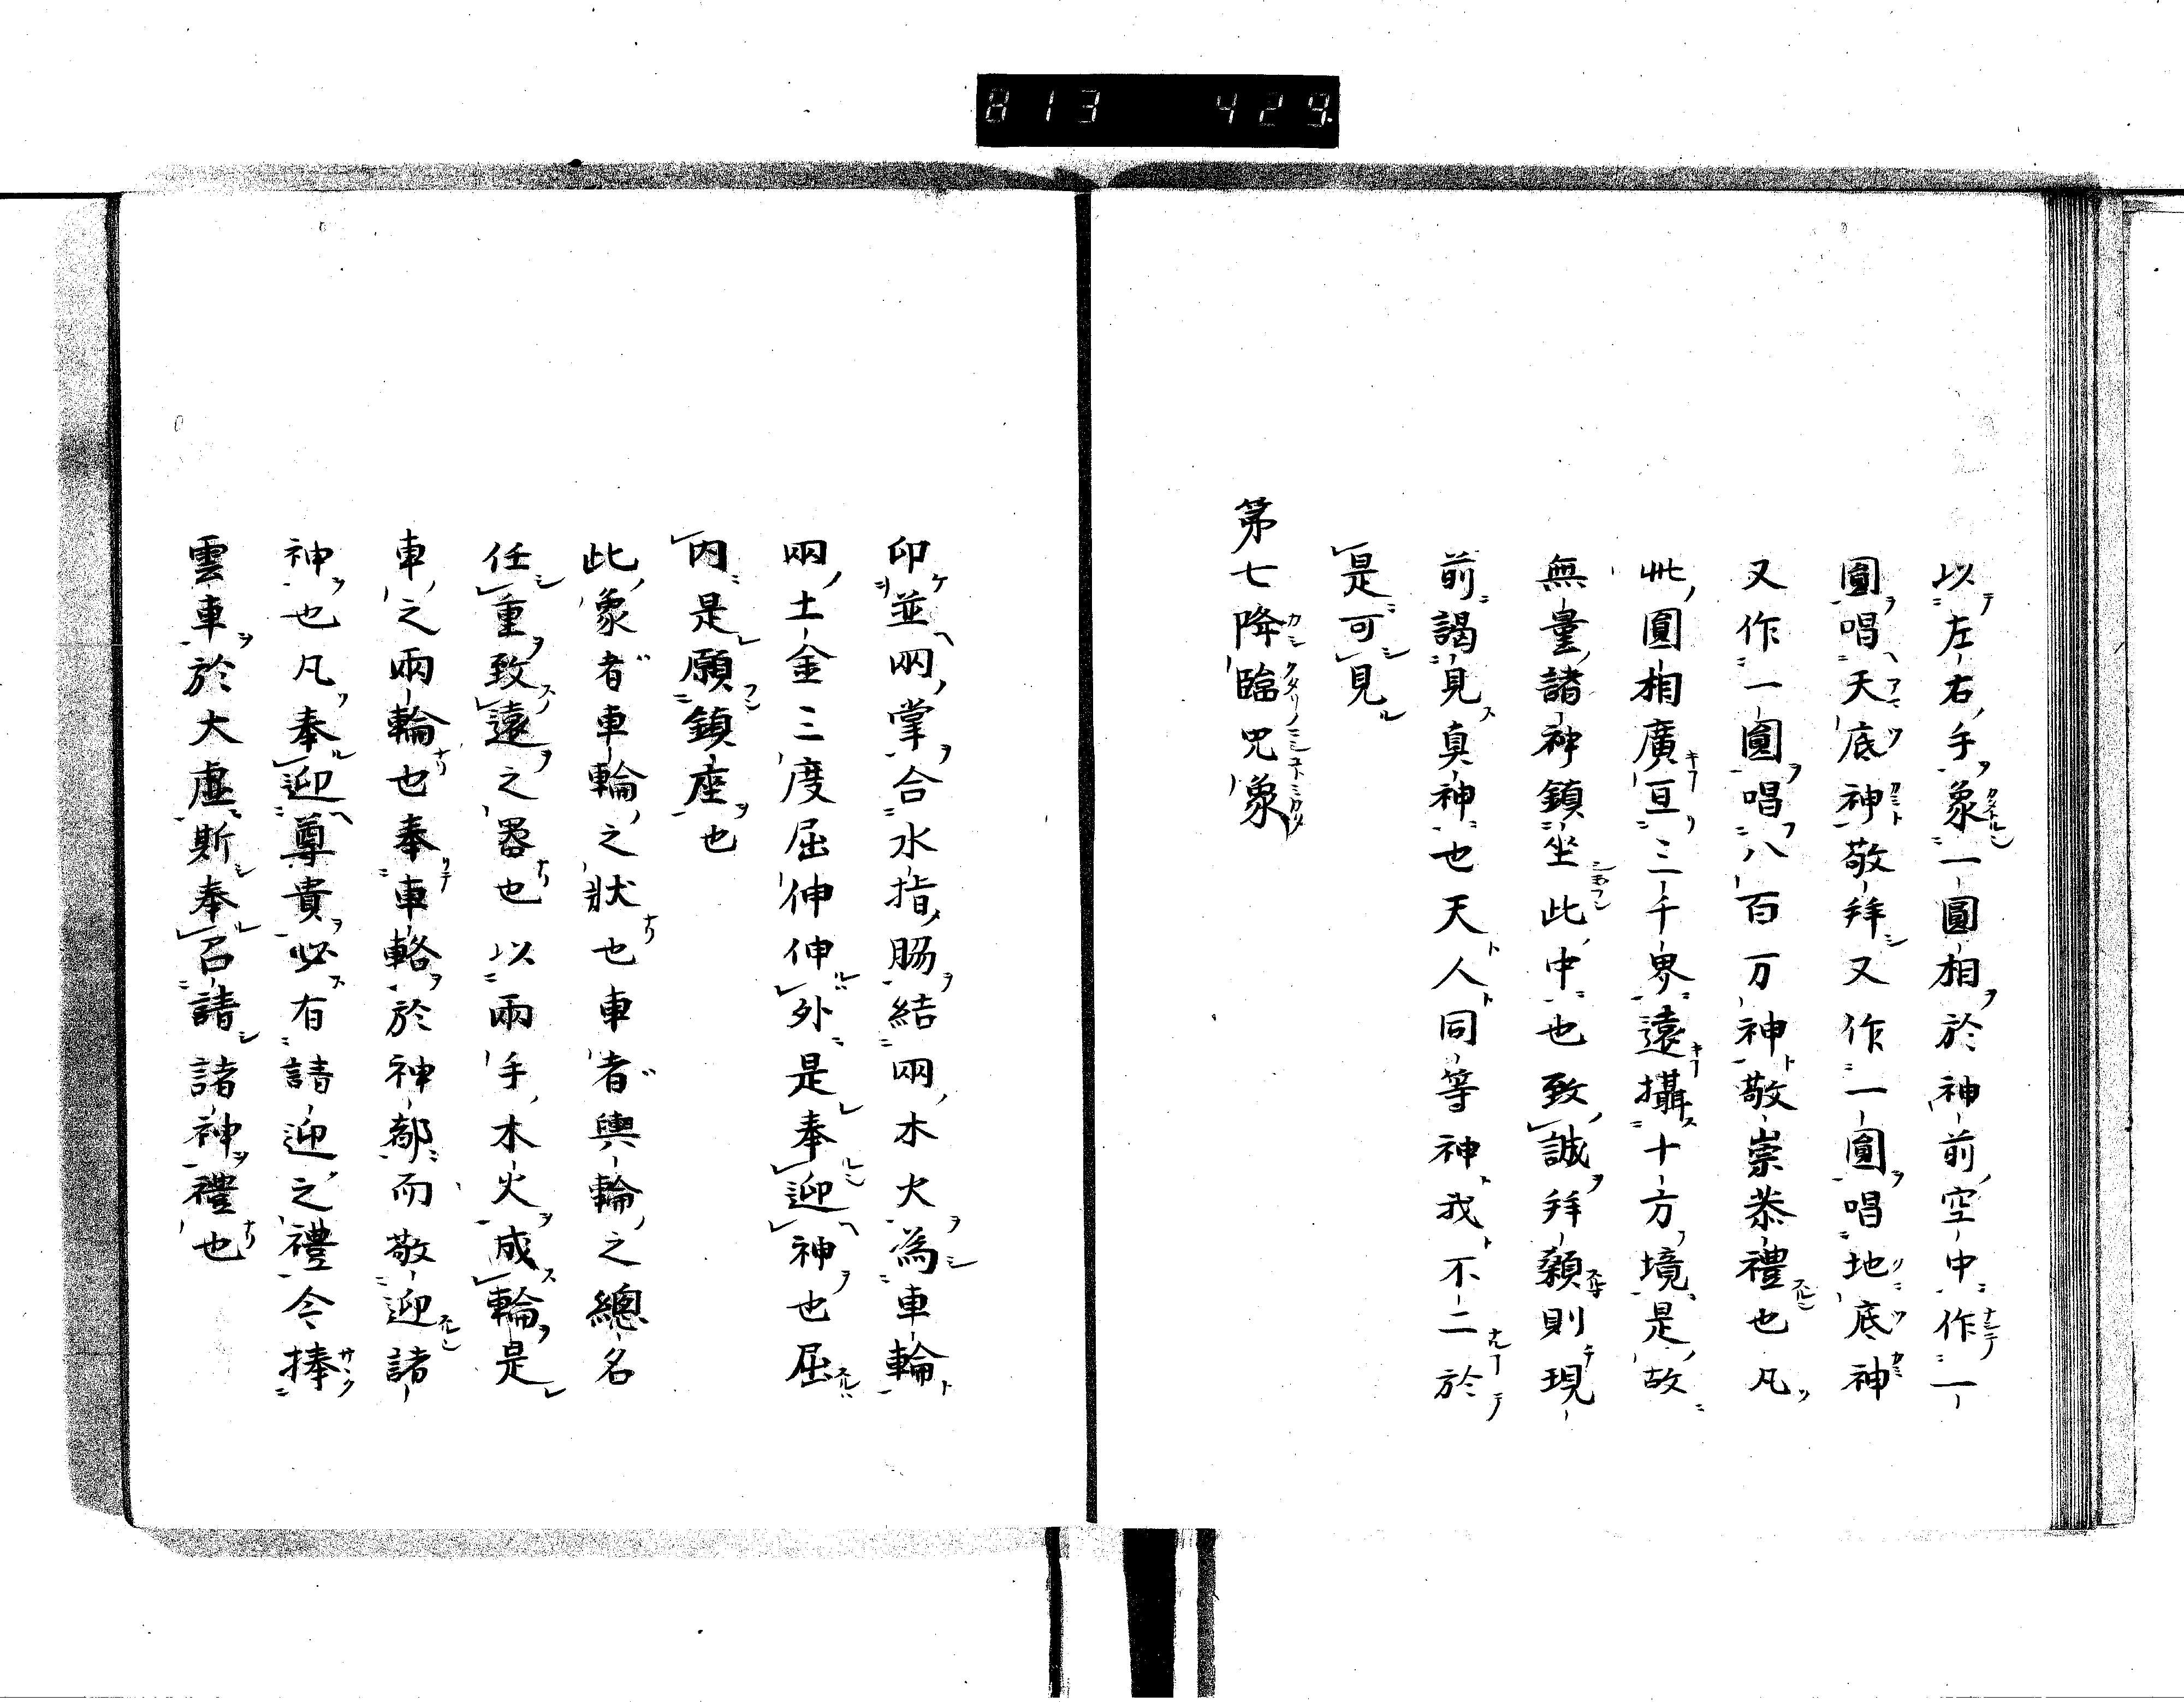 813 429.
以左右手象一圓相於神前空中作一
圓唱天底神敬拜又作一圓唱地底神
又作一圓唱八百万神敬崇恭禮也凡
此圓相廣亘三千界遠攝十方境是故
無量諸神鎮坐此中也致誠拜顙則現
前謁見真神也天人同等神我不二於
是可見
第七降臨咒象
印並兩掌合水指腸結兩木火為車輪
兩土金三度屈伸伸外是奉迎神也屈
内是願鎮座也
此象者車輪之狀也車者輿輪之總名
任重致遠之器也以兩手木火成輪是
車之兩輪也奉車輅於神都而敬迎諸
神也凡奉迎尊貴必有請迎之禮今捧
雲車於大虚斯奉召請諸神禮也